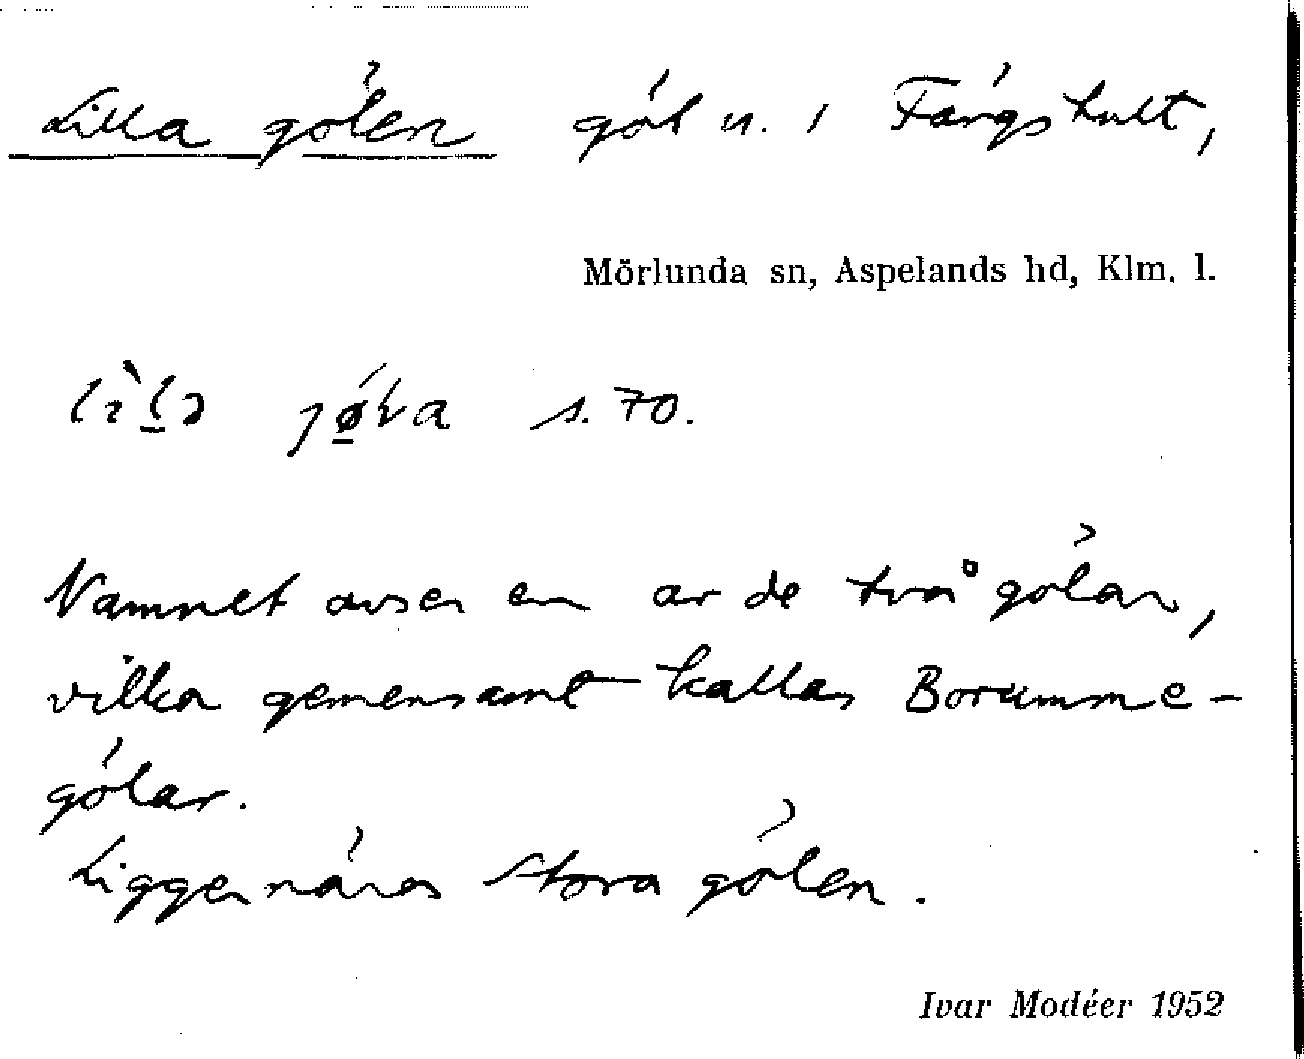 Lilla gölen göl n. i Färgshult,
Mörlunda sn, Aspelands hd, Klm. l.
s. 70.
Namnet avser en av de två gölar,
vilka gemensamt kallas Borumme-
gölar.
Ligger nära Stora gölen.
Ivar Modéer 1952